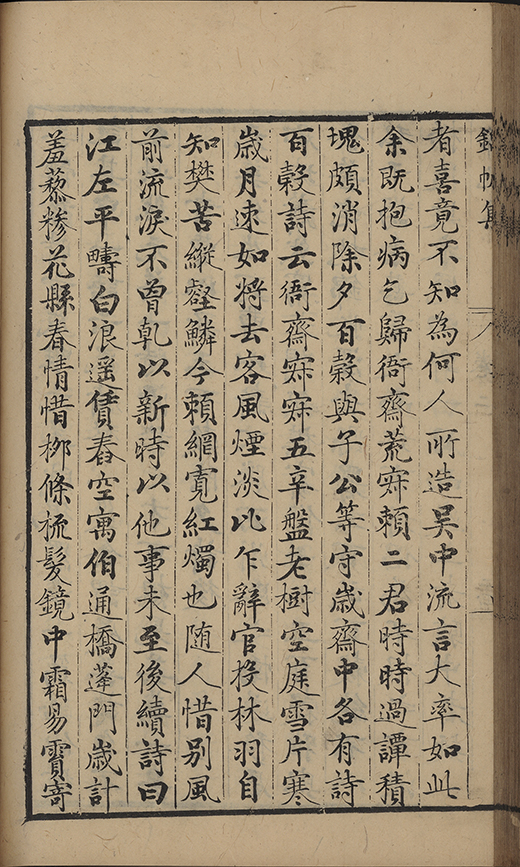 錦帆集
者喜竟不知為何人所造吳中流言大率如此
余既抱病乞歸衙齋荒寂賴二君時時過譚積
塊頗消除夕百穀與子公等守歲齋中各有詩
百穀詩云衙齋寂寂五辛盤老樹空庭雪片寒
歲月速如將去客風煙淡比乍辭官投林羽自
知樊苦縱壑鱗今賴網寬紅燭也随人惜別風
前流淚不曾乹以新時以他事未至後續詩曰
江左平疇白浪遥賃舂空寓伯通橋蓬門歲計
羞藜糝花縣春情惜柳條梳髮鏡中霜易實寄